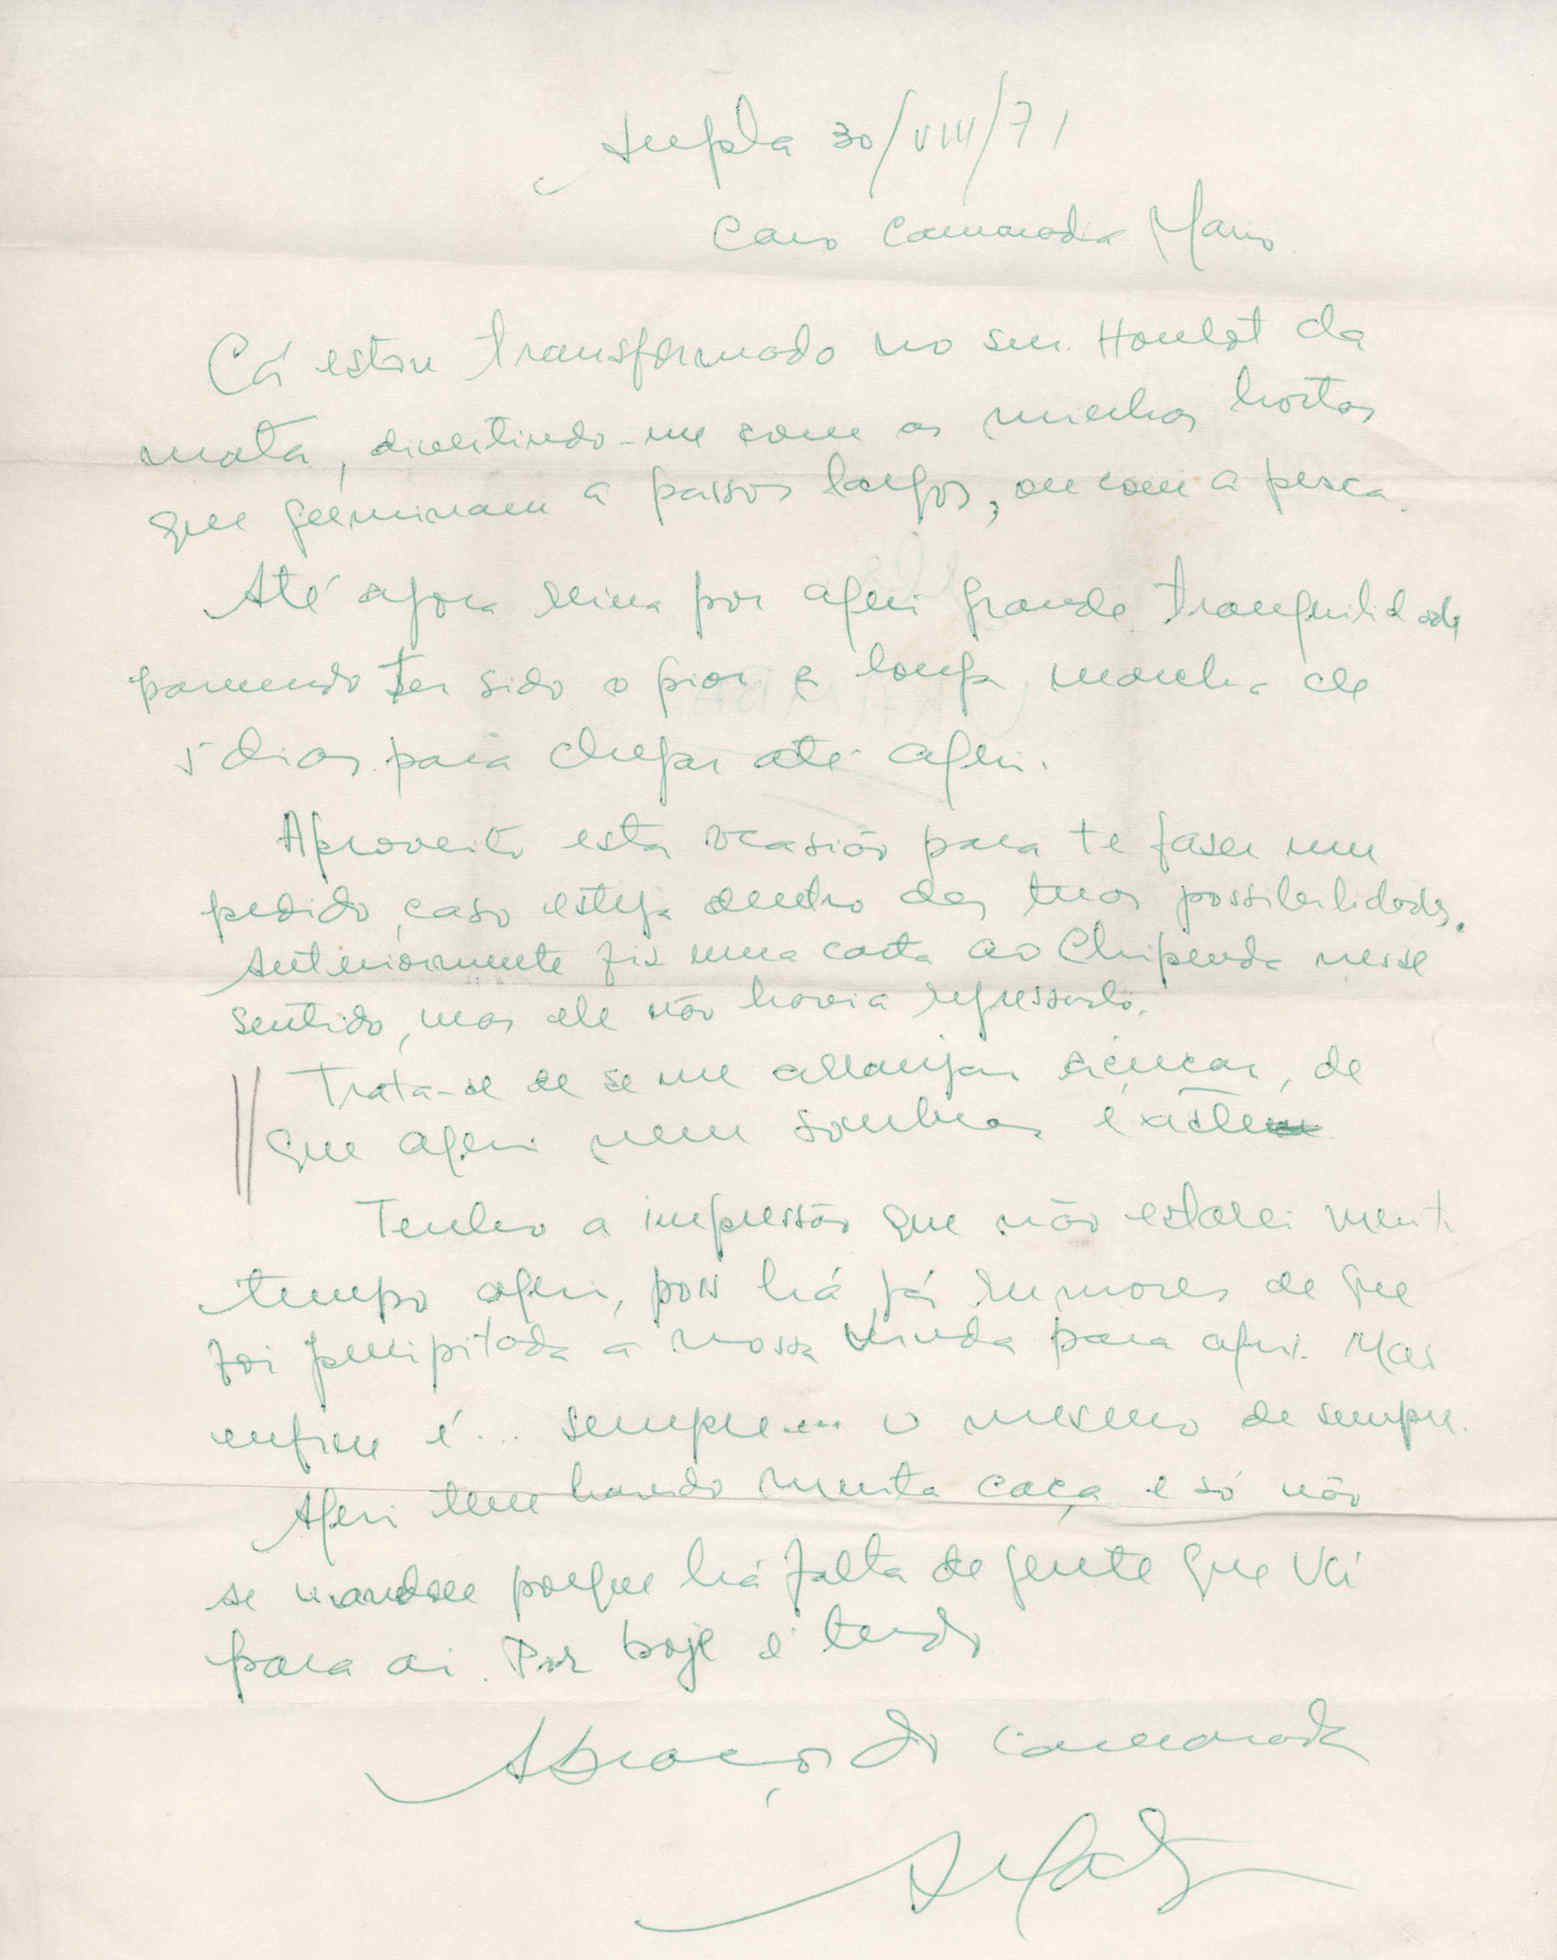 30/VIII/71
Caro camarada Mario
Cá estou transformado no seu. Houlot da
mata, divertindo-me com as minhas hortas
que germinam a passos largos, ou com a pesca.
Até agora reina por aqui grande tranquilidade
parecendo ter sido o pior a longa marcha de
5 dias para chegar até aqui.
Aproveito esta ocasião para te faser um
pedido, caso esteja dentro das tuas possibilidades.
Anteriormente fiz uma carta ao Chipenda nesse
sentido, mas ele não havia regressado.
Trata-se de se me arranjar açucar, de
que aqui nem sombras existe
Tenho a impressão que não estarei muito
tempo aqui, pois há já rumores de que
foi precipitada a nossa vinda para aqui. Mas
enfim é... sempre... o mesmo de sempre.
Aqui tem havido muita caça e só não
se mandou porque há falta de gente que vá
para ai. Por hoje é tudo
Abraços do camarada